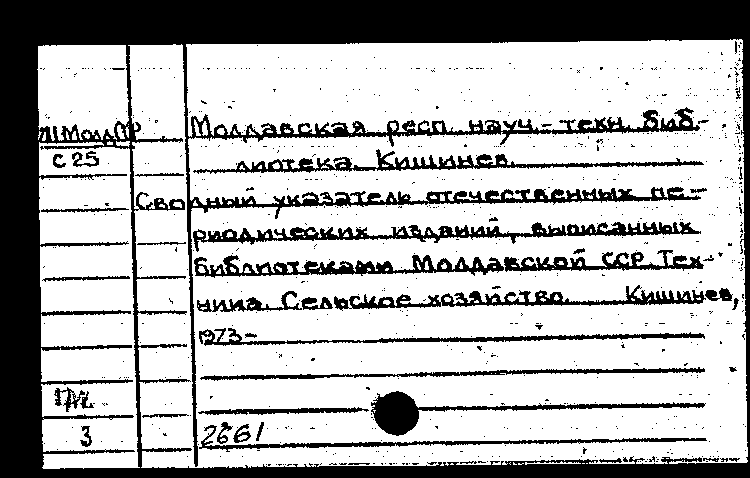 Молдавская респ. науч.- техн. биб-
С 25
лиотека. Кишинев.
Сводный указатель отечественных пе-
риодических изданий, выписанных
библиотеками Молдавской ССР. Тех-
ника. Сельское хозяйство. Кишинев,
1973-
3
2661